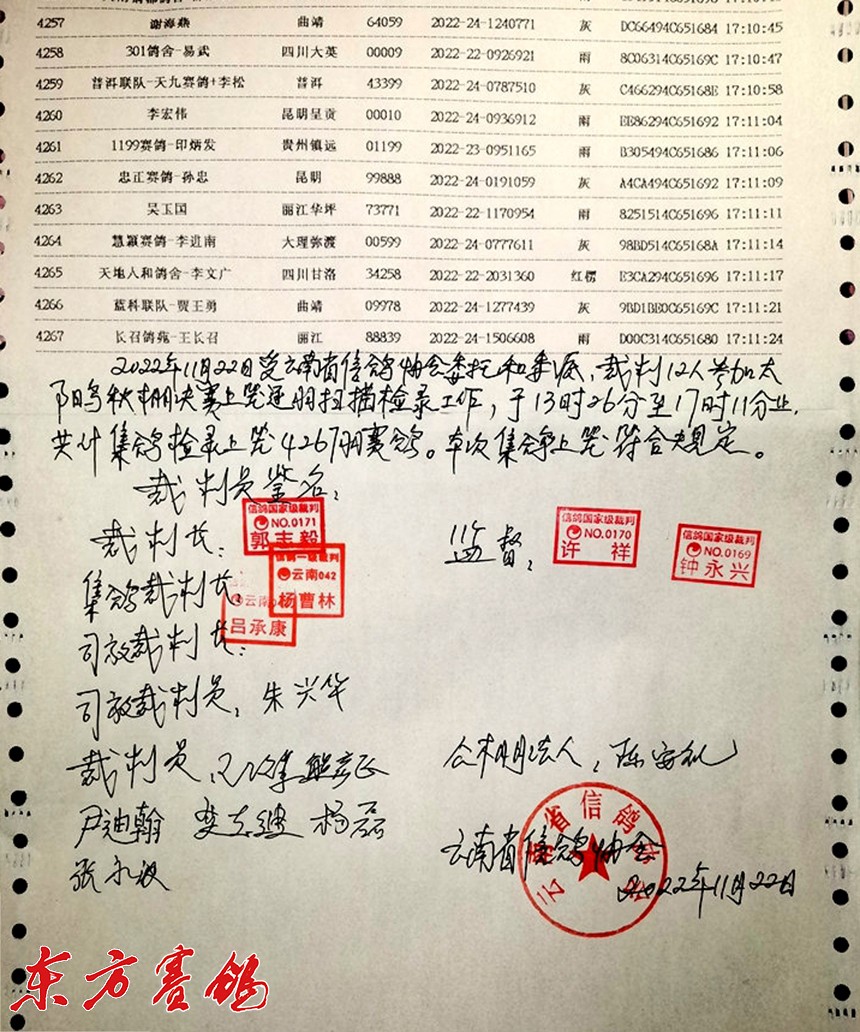 4257 谢海燕 曲靖 64059 2022-24-1240771 灰 DC66494C651684 17:10:45
4258 301鸽舍-易武 四川大英 00009 2022-22-0926921 雨 8C06314C65169C 17:10:47
4259 普洱联队-天九赛鸽+李松 普洱 43399 2022-24-0787510 灰 C466294C65168E 17:10:58
4260 李宏伟 昆明呈贡 00010 2022-24-0936912 雨 EE86294C651692 17:11:04
4261 1199赛鸽-印炳发 贵州镇远 01199 2022-23-0951165 雨 B305494C651686 17:11:06
4262 忠正赛鸽-孙忠 昆明 99888 2022-24-0191059 灰 A4CA494C651692 17:11:09
4263 吴玉国 丽江华坪 73771 2022-22-1170954 雨 8251514C651696 17:11:11
4264 慧颖赛鸽-李进南 大理弥渡 00599 2022-24-0777611 灰 98BD514C65168A 17:11:14
4265 天地人和鸽舍-李文广 四川甘洛 34258 2022-22-2031360 红楞 E3CA294C651696 17:11:17
4266 蓝科联队-贾王勇 曲靖 09978 2022-24-1277439 灰 9BD1BE0C65169C 17:11:21
4267 长召鸽苑-王长召 丽江 88839 2022-24-1506608 雨 D00C314C651680 17:11:24
2022年11月22日受云南省信鸽协会委托和委派,裁判12人参加太
阳鸟秋棚决赛上笼逐羽扫描检录工作,于13时26分至17时11分止,
共计集鸽检录上笼4267羽赛鸽。本次集鸽上笼符合规定。
裁判员签名:
裁判长:
信鸽国家级裁判
NO.0171
郭志毅
监督:
信鸽国家级裁判
NO.0170
许祥
信鸽国家级裁判
NO.0169
钟永兴
集鸽裁判长:
信鸽一级裁判
云南042
杨曹林
司放裁判长:
云南
吕承康
司放裁判员:朱兴华
裁判员:
公棚法人:陈安礼
尹迪翰 杨磊
云南省信鸽协会
云南省信鸽协会
2022年11月22日
东方赛鸽